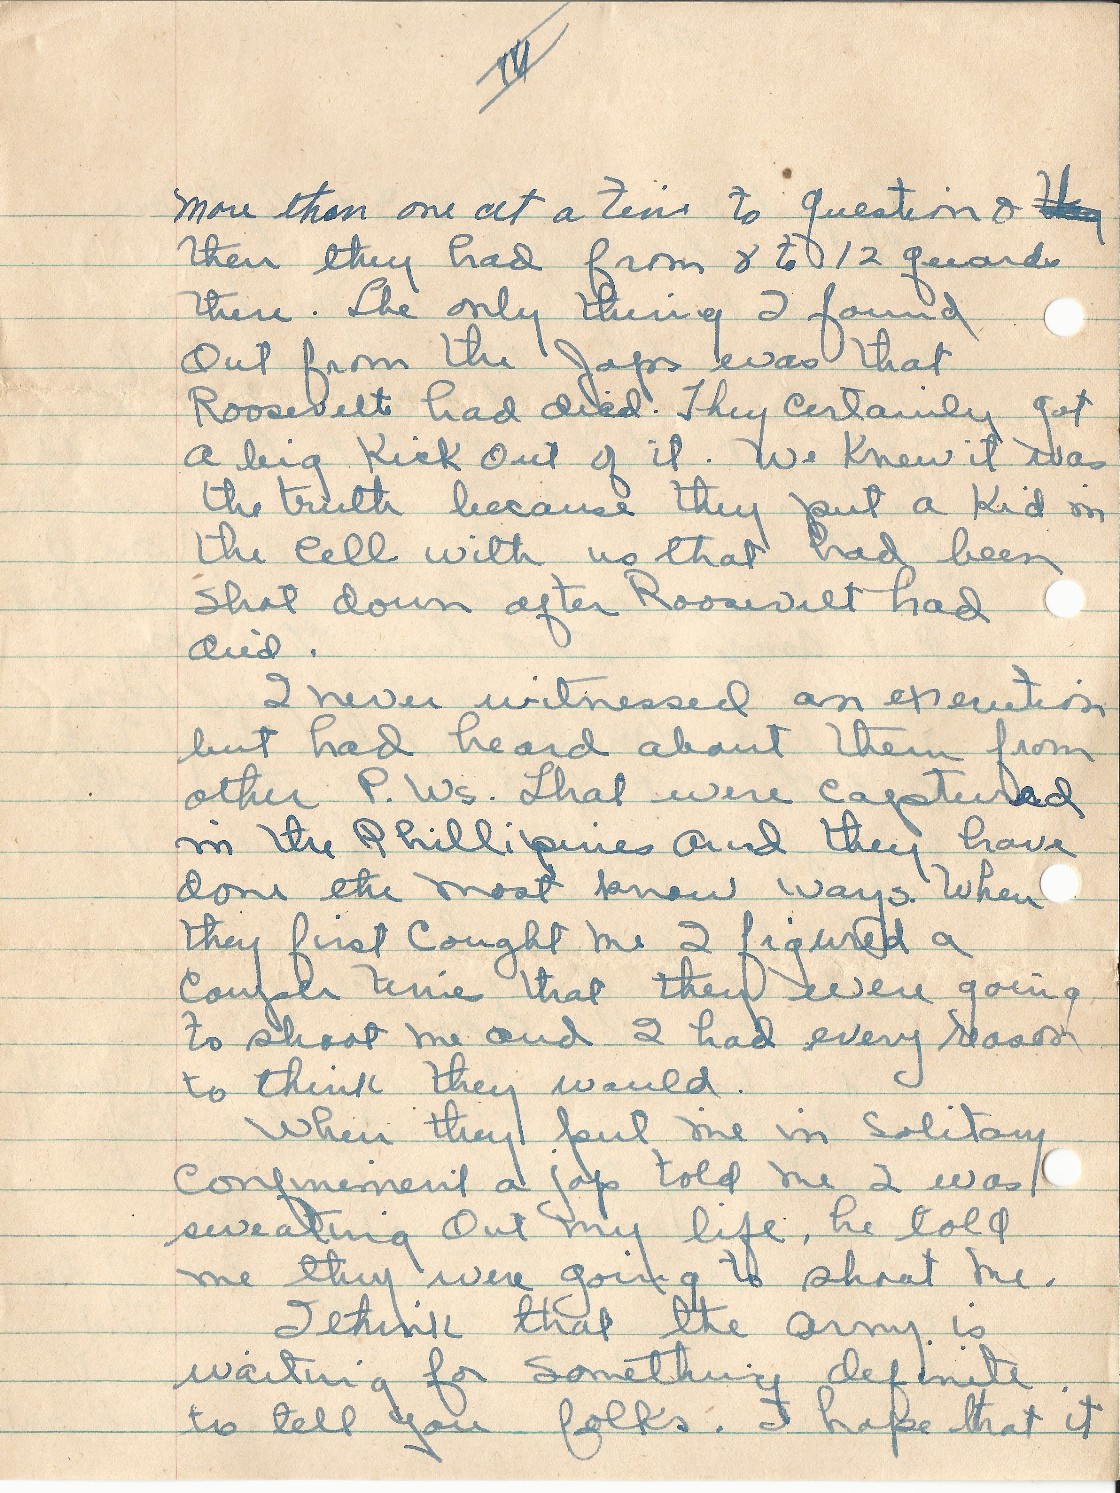 IV
more than one at a time to question &
then they had from 8 to 12 guards
there. The only thing I found
out from the Japs was that
Roosevelt had died. They certainly got
a big Kick out of it. We Knew it was
the truth because they put a Kid in
the Cell with us that had been
shot down after Roosevelt had
died.
I never witnessed an execution
but had heard about them from
other P.Ws. that were captured
in the Phillipines and they have
done the most know ways. When
they first Cought me I figured a
Couple time that they were going
to shoot me and I had every reason
to think they would.
When they put me in Solitary
Confinement a jap told me I was
sweating Out my life, he told
me they were going to shoot me.
I think that the army is
waiting for something definite
to tell you folks. I hope that it